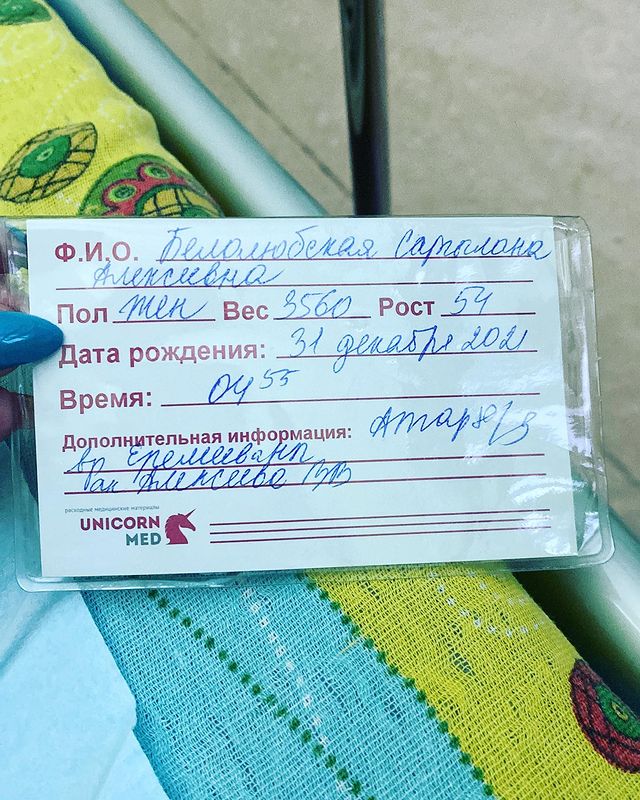 Ф.И.О. Белолюбская Сарылана
Алексеевна
Пол жен Вес 3560 Рост 54
Дата рождения: 31 декабря 2021
Время: 04 55
Дополнительная информация:
вр
ак Алексеева
расходные медицинские материалы
UNICORN
MED